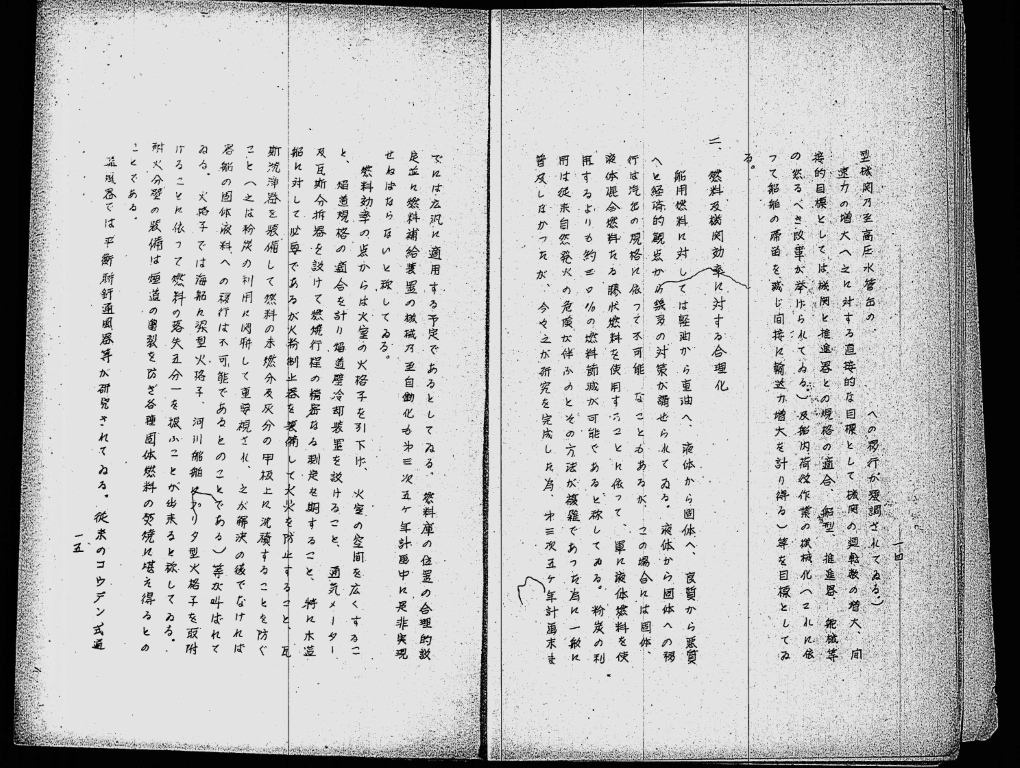 型機関乃至高圧水管缶の　　への移行が強調されてゐる）
速力の増大へ之に対する直接的な目標として機関の廻転数の増大、間
接的目標としては機関と推進器との規格の適合、船型、推進器、舵械等
の然るべき改革が挙げられてゐる）及船内荷役作業の機械化（これに依
つて船舶の滞留を減じ間接に輸送力増大を計り得る）等を目標としてゐ
る。
二、燃料及機関効率に対する合理化
舶用燃料に対しては軽油から重油へ、液体から固体へ、良質から悪質
へと経済的観点から幾多の対策が講ぜられてゐる。液体から固体への移
行は汽缶の規格に依つて不可能なこともあるが、この場合には固体、
液体混合燃料たる膠状燃料を使用することに依つて、単に液体燃料を使
用するよりも約三〇％の燃料節減が可能であると称してゐる。粉炭の利
用は従来自然発火の危険が伴ふのとその方法が複雑であつた為に一般に
普及しなかつたが、今や之が研究を完成した為、第三次五ケ年計画末ま
一四
でには広汎に適用する予定であるとしてゐる。燃料庫の位置の合理的設
定並に燃料補給装置の機械乃至自働化も第三次五ケ年計画中に是非実現
せねばならないと称してゐる。
燃料効率の点からは火室の火格子を引下げ、火室の空間を広くするこ
と、焔道規格の適合を計り焔道壁冷却装置を設けること、通気メーター
及瓦斯分析器を設けて燃焼行程の精密なる測定を期すること、特に木造
船に対して必要であるが火粉制止器を装備して火災を防止すること、瓦
斯洗浄器を装備して燃料の未燃分及灰分の甲板上に沈積することを防ぐ
こと（之は粉炭の利用に関聯して重要視され、之が解決の後でなければ
客船の固体燃料への移行は不可能であるとのことである）等が叫ばれて
ゐる。火格子では海船に梁型火格子、河川船舶に　　タ型火格子を取附
けることに依つて燃料の落失五分一を救ふことが出来ると称してゐる。
耐火分壁の装備は煙道の亀裂を防ぎ各種固体燃料の焚焼に堪え得るとの
ことである。
通風器では平衡聯軒通風器等が研究されてゐる。従来のコウデン式通
一五